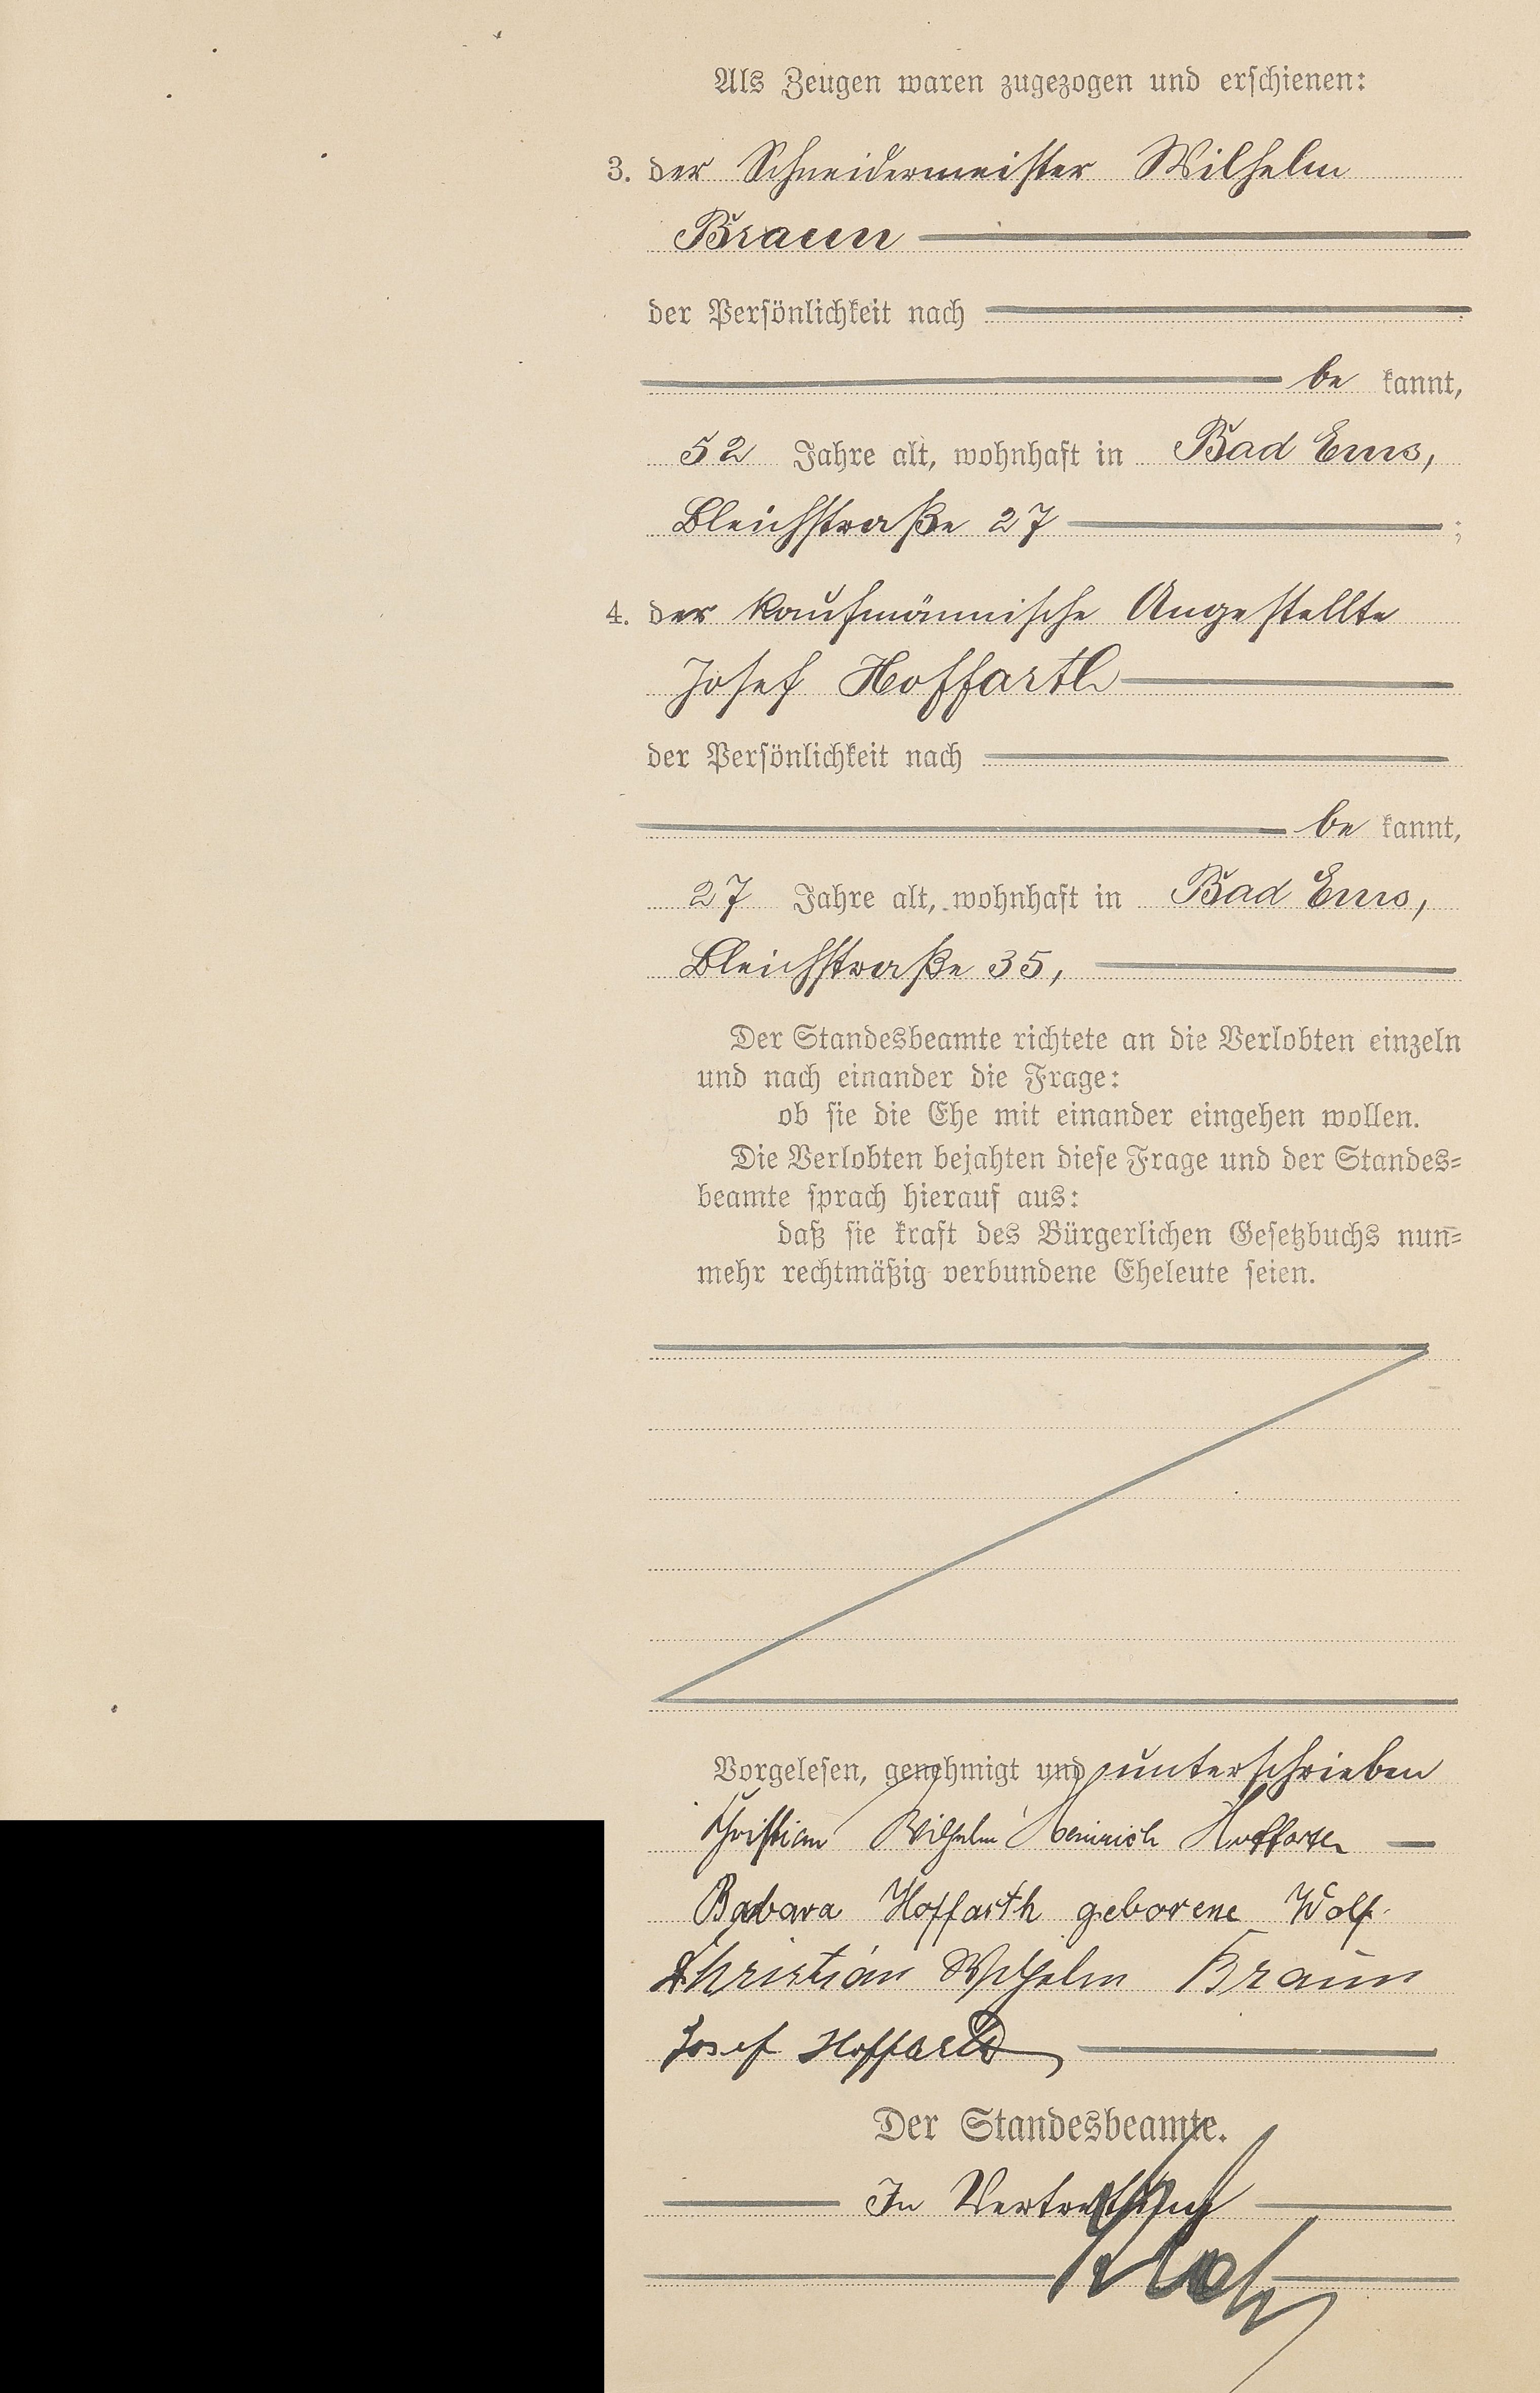 Als Zeugen waren zugezogen und erschienen:
3. der Schneidermeister Wilhelm
Braun
der Persönlichkeit nach
be kannt,
52 Jahre alt, wohnhaft in Bad Ems,
Bleichstraße 27 ;
4. der kaufmännische Angestellte
Josef Hoffarth
der Persönlichkeit nach
be kannt,
27 Jahre alt, wohnhaft in Bad Ems,
Bleichstraße 35,
Der Standesbeamte richtete an die Verlobten einzeln
und nach einander die Frage:
ob sie die Ehe mit einander eingehen wollen.
Die Verlobten bejahten diese Frage und der Standes-
beamte sprach hierauf aus:
daß sie kraft des Bürgerlichen Gesetzbuchs nun-
mehr rechtmäßig verbundene Eheleute seien.
Vorgelesen, genehmigt und unterschrieben
Christian Wilhelm Heinrich Hoffarth
Babara Hoffarth geborene Wolf
Christian Wilhelm Braun
Josef Hoffarth
Der Standesbeamte.
In Vertretung